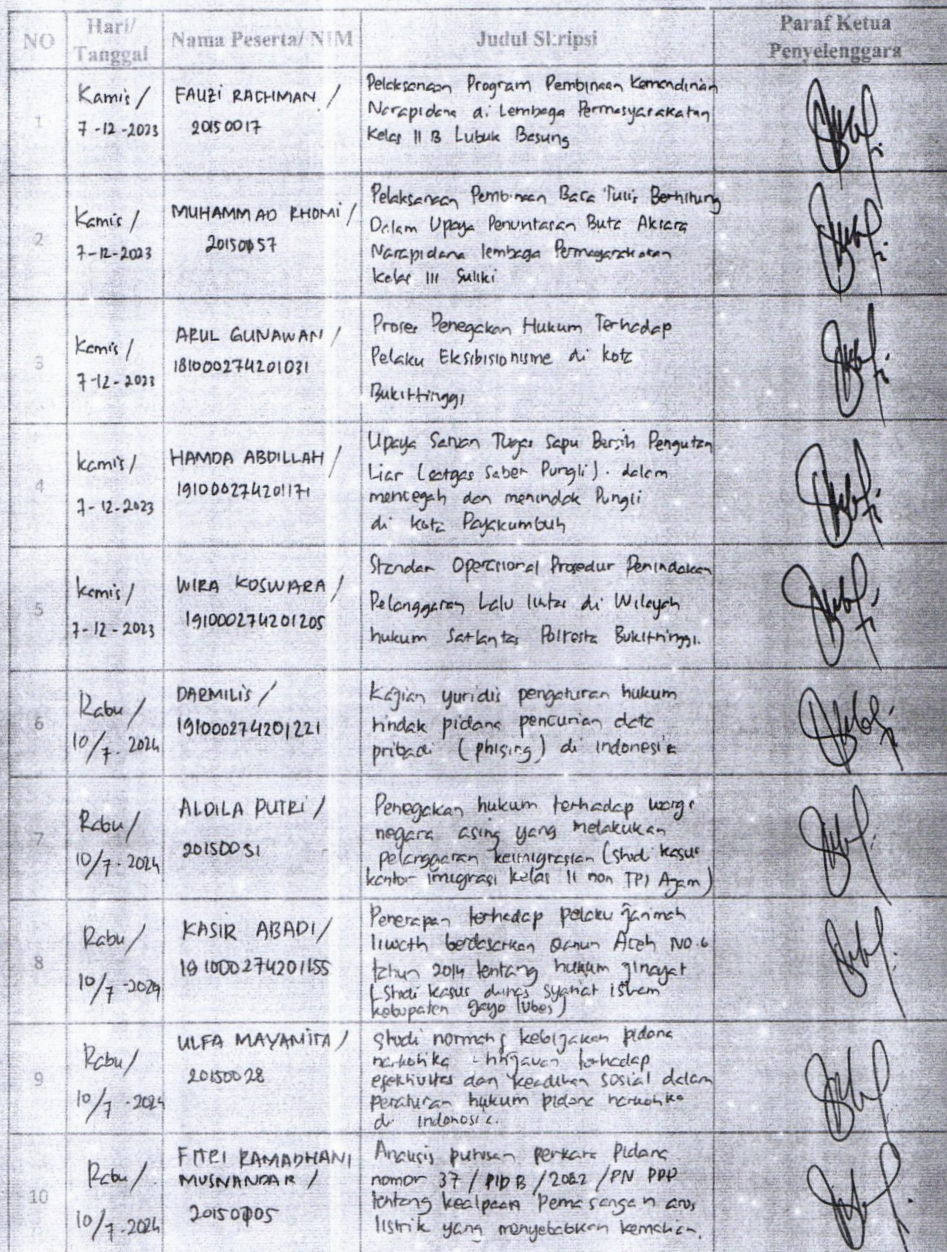 NO Hari/ Tanggal Nama Peserta/ NIM Judul Skripsi Paraf Ketua Penyelenggara
1
Kamis /
7-12-2023
FAUZI RACHMAN /
20150017
Pelaksanaan Program Pembinaan Kemandirian
Narapidana di Lembaga Permasyarakatan
Kelas II B Lubuk Basung
2
Kamis /
7-12-2023
MUHAMMAD RHOMI /
20150057
Pelaksanaan Pembinaan Baca Tulis Berhitung
Dalam Upaya Penuntasan Buta Aksara
Narapidana lembaga Permasyarakatan
Kelas III Suliki
3
Kamis /
7-12-2023
ARUL GUNAWAN /
181000274201031
Proses Penegakan Hukum Terhadap
Pelaku Eksibisionisme di kota
Bukittinggi
4
kamis /
7-12-2023
HAMDA ABDILLAH /
191000274201171
Upaya Satuan Tugas Sapu Bersih Pengutan
Liar (satgas Saber Pungli). dalam
mencegah dan menindak Pungli
di kota Payakumbuh
5
kamis /
7-12-2023
WIRA KOSWARA /
191000274201205
Standar Operasional Prosedur Penindakan
Pelanggaran Lalu lintas di Wilayah
hukum Satlantas Polresta Bukittinggi.
6
Rabu /
10/7-2024
DARMILIS /
191000274201221
Kajian yuridis pengaturan hukum
tindak pidana pencurian data
pribadi (phising) di indonesia
7
Rabu /
10/7-2024
ALDILA PUTRI /
20150031
Penegakan hukum terhadap warga
negara asing yang melakukan
pelanggaran keimigrasian (studi kasus
kantor imigrasi kelas II non TPI Agam)
8
Rabu /
10/7-2024
KASIR ABADI /
191000274201155
Penerapan terhadap pelaku jarimah
liwath berdasarkan Qanun Aceh NO.6
tahun 2014 tentang hukum jinayat
(Studi kasus dinas syariat islam
kabupaten gayo lubes)
9
Rabu /
10/7-2024
ULFA MAYANITA /
20150028
Studi kebijakan pidana
narkotika tinjauan terhadap
efektivitas dan keadilan sosial dalam
peraturan hukum pidana narkotika
di indonesia.
10
Rabu /
10/7-2024
FITRI RAMADHANI
MUSNANDAR /
20150005
Analisis putusan perkara Pidana
nomor 37 / PID B / 2022 / PN PDP
tentang kealpaan Pemasangan arus
listrik yang menyebabkan kematian.